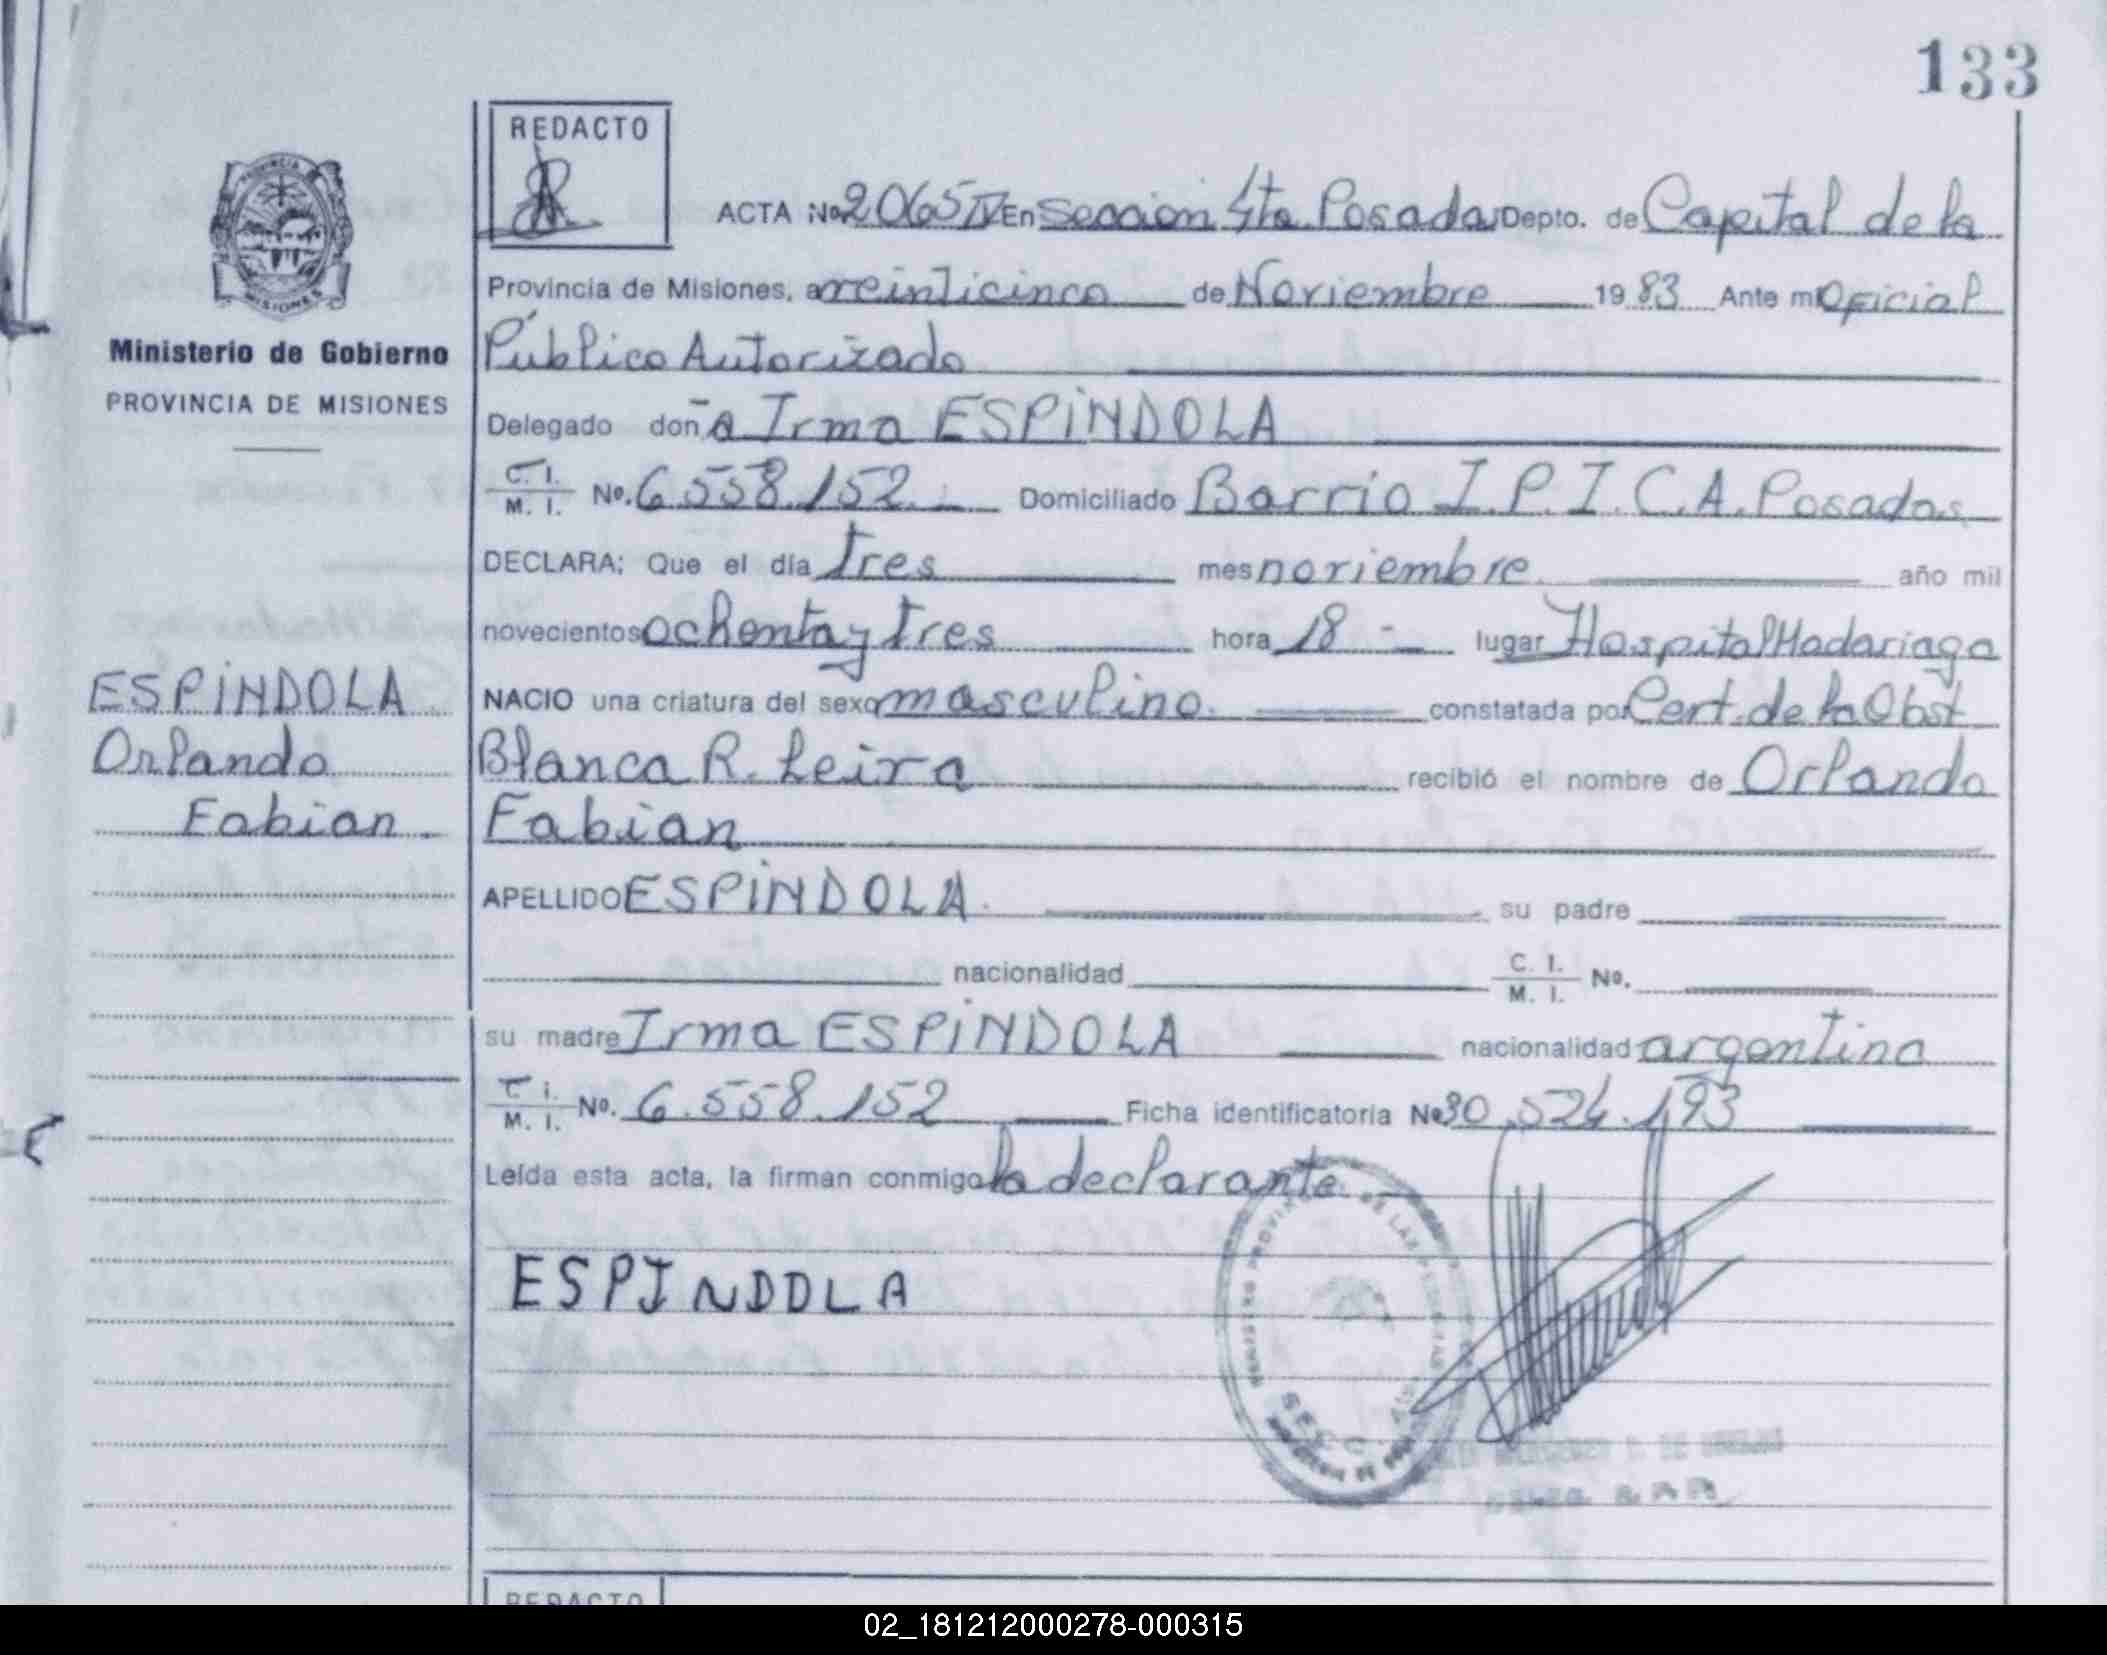 133
REDACTO
ACTA No 2065 IV En Seccion 4ta Posadas Depto. de Capital de la
Provincia de Misiones, a veinticinco de Noviembre 1983 Ante mi Oficial
Público Autorizado
Ministerio de Gobierno
PROVINCIA DE MISIONES
Delegado doña Irma ESPINDOLA
C. I.
M. I. No. 6.558.152 Domiciliado Barrio I.P.I.C.A. Posadas
DECLARA: Que el día tres mes noviembre año mil
novecientos ochenta y tres hora 18 - lugar Hospital Madariaga
NACIO una criatura del sexo masculino constatada por Cert. de la Obst
Blanca R. Leira recibió el nombre de Orlando
Fabian
ESPINDOLA
Orlando
Fabian
APELLIDO ESPINDOLA su padre
nacionalidad C. I.
M. I. No.
su madre Irma ESPINDOLA nacionalidad argentina
C. I.
M. I. No. 6.558.152 Ficha identificatoria No 30.524.193
Leída esta acta, la firman conmigo la declarante
ESPINDOLA
REDACTO
02_181212000278-000315